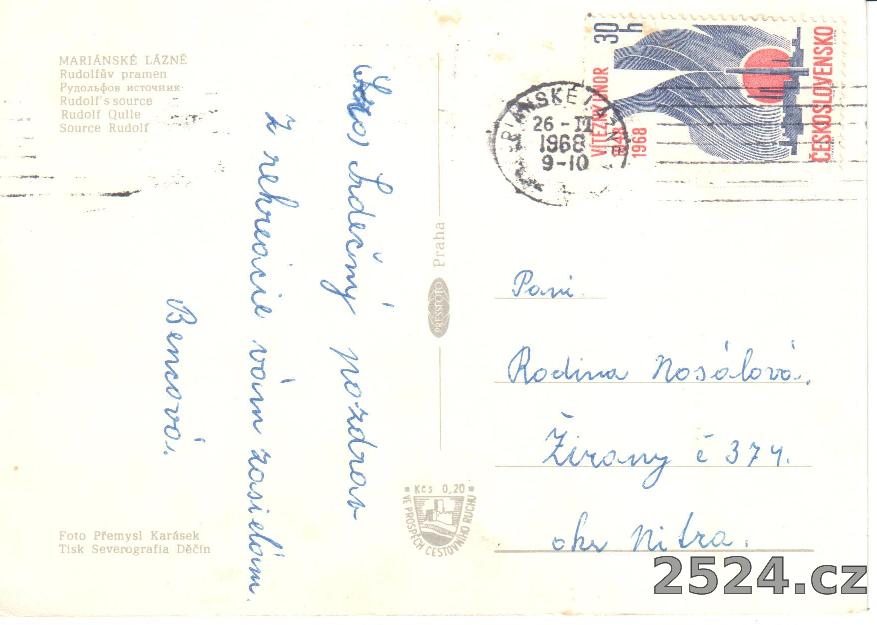 MARIÁNSKÉ LÁZNĚ
Rudolfův pramen
Рудольфов источник
Rudolf's source
Rudolf Qulle
Source Rudolf
Srdečný pozdrav
z rekreacie vám zasielám.
Bencová.
Foto Přemysl Karásek
Tisk Severografia Děčín
Praha
PRESSFOTO
Kčs 0,20
VE PROSPĚCH CESTOVNÍHO RUCHU
30 h
VÍTĚZNÝ ÚNOR
1968
ČESKOSLOVENSKO
26 - II
1968
9-10
Pani
Rodina Nosálová.
Žirany č 374.
okr Nitra.
2524.cz